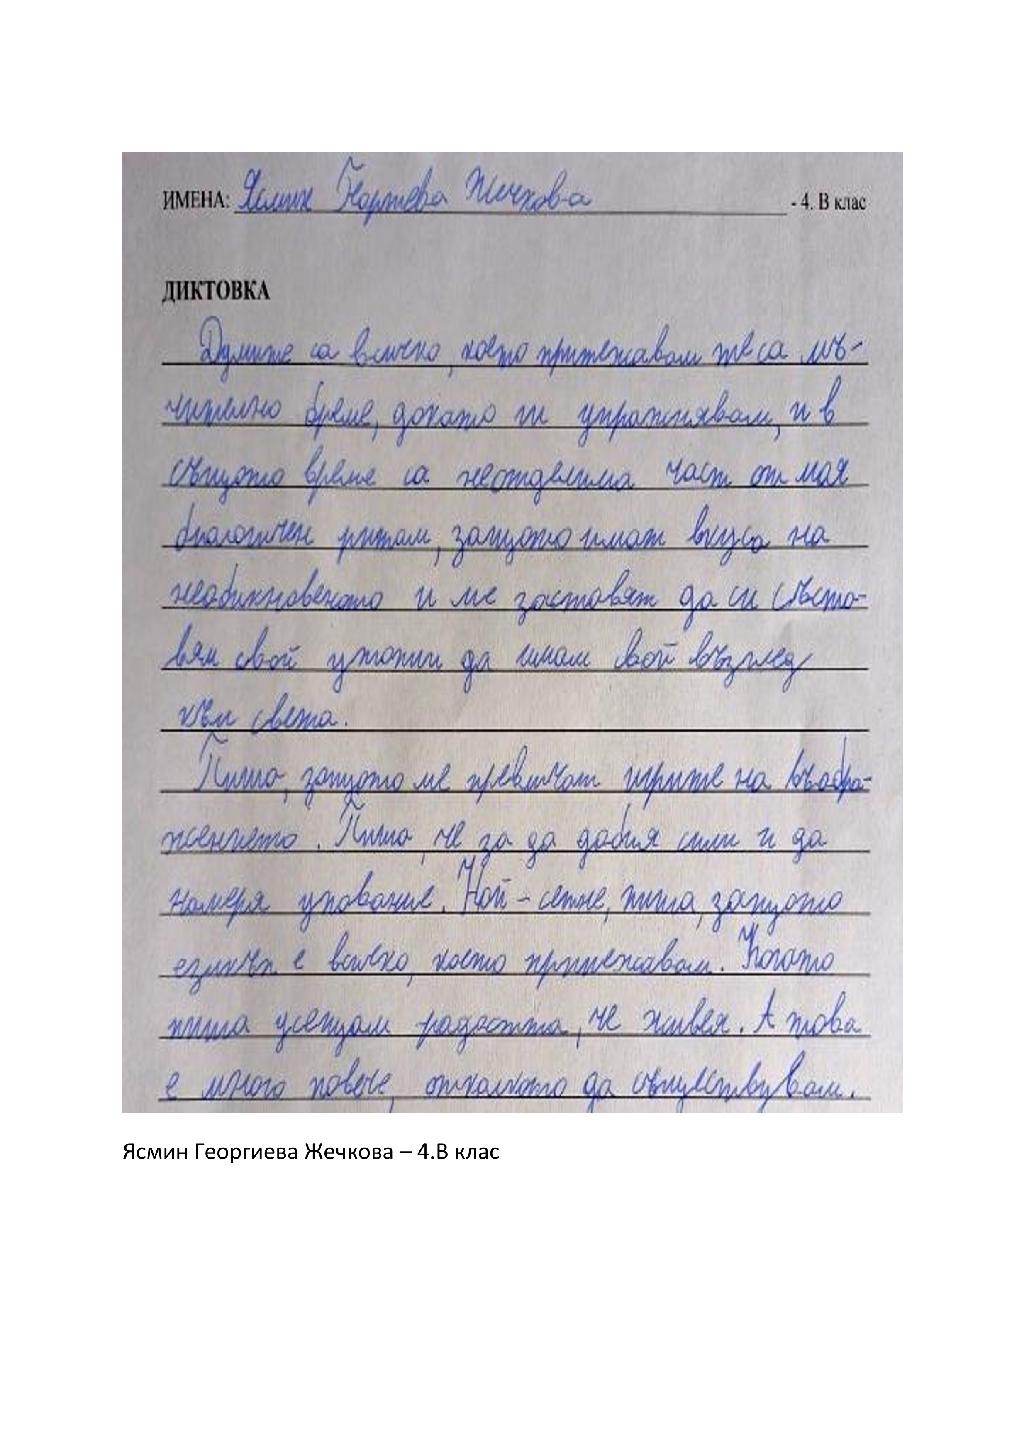 ИМЕНА: Ясмин Георгиева Жечкова - 4. В клас
ДИКТОВКА
Думите са всичко, което притежавам те са мъ-
чително бреме, докато ги упражнявам, и в
същото време са неотделима част от моя
биологичен ритъм, защото имат вкуса на
необикновеното и ме заставят да си съста-
вям свой утопии да имам свой възглед
към света.
Пиша, защото ме превличат игрите на въобра-
жението. Пиша, че за да добия сили и да
намеря упование. Най-сетне, пиша, защото
езикът е всичко, което притежавам. Когато
пиша усещам радостта, че живея. А това
е много повече, отколкото да съществувам.
Ясмин Георгиева Жечкова – 4.В клас